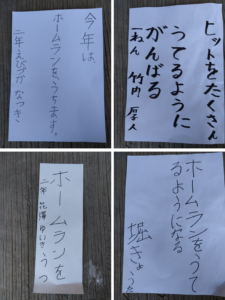 今年は
ホームランをうちます。
二年 えびづか なつき
ヒットをたくさん
うてるように
がんばる
一ねん 竹内 厚人
ホームランを
うつ
二年 花澤 ゆいき
ホームランをうて
るようになる
堀 きょうた